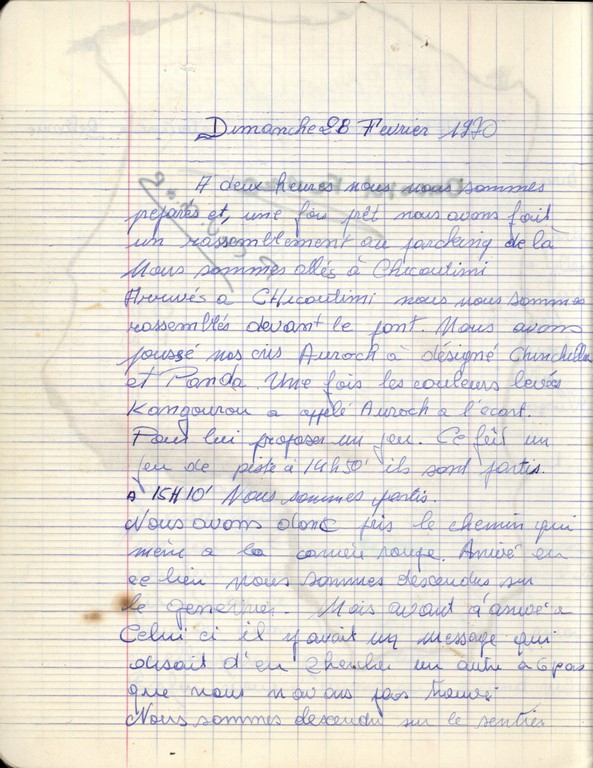 Dimanche 28 Fevrier 1970
A deux heures nous nous sommes
preparés et, une fois prêt nous avons fait
un rassemblement au parcking de là
Nous sommes allés à Chicoutimi
Arrivés a CHicoutimi nous nous sommes
rassemblés devant le pont. Nous avons
poussé nos cris Auroch à désigné Chinchilla
et Panda. Une fois les couleurs levées
Kangourou a appelé Auroch a l'écart.
Pour lui proposer un jeu. Ce fût un
jeu de piste à 14h50' ils sont partis.
A 15H10' Nous sommes partis.
Nous avons donc pris le chemin qui
mène a la carrière rouge. Arrivé en
ce lieu nous sommes descendus sur
le. Mais avant d'arrivé a
Celui ci il y avait un message qui
disait d'en chercher un autre a 6 pas
que nous n'avons pas trouvé
Nous sommes descendu sur le sentier